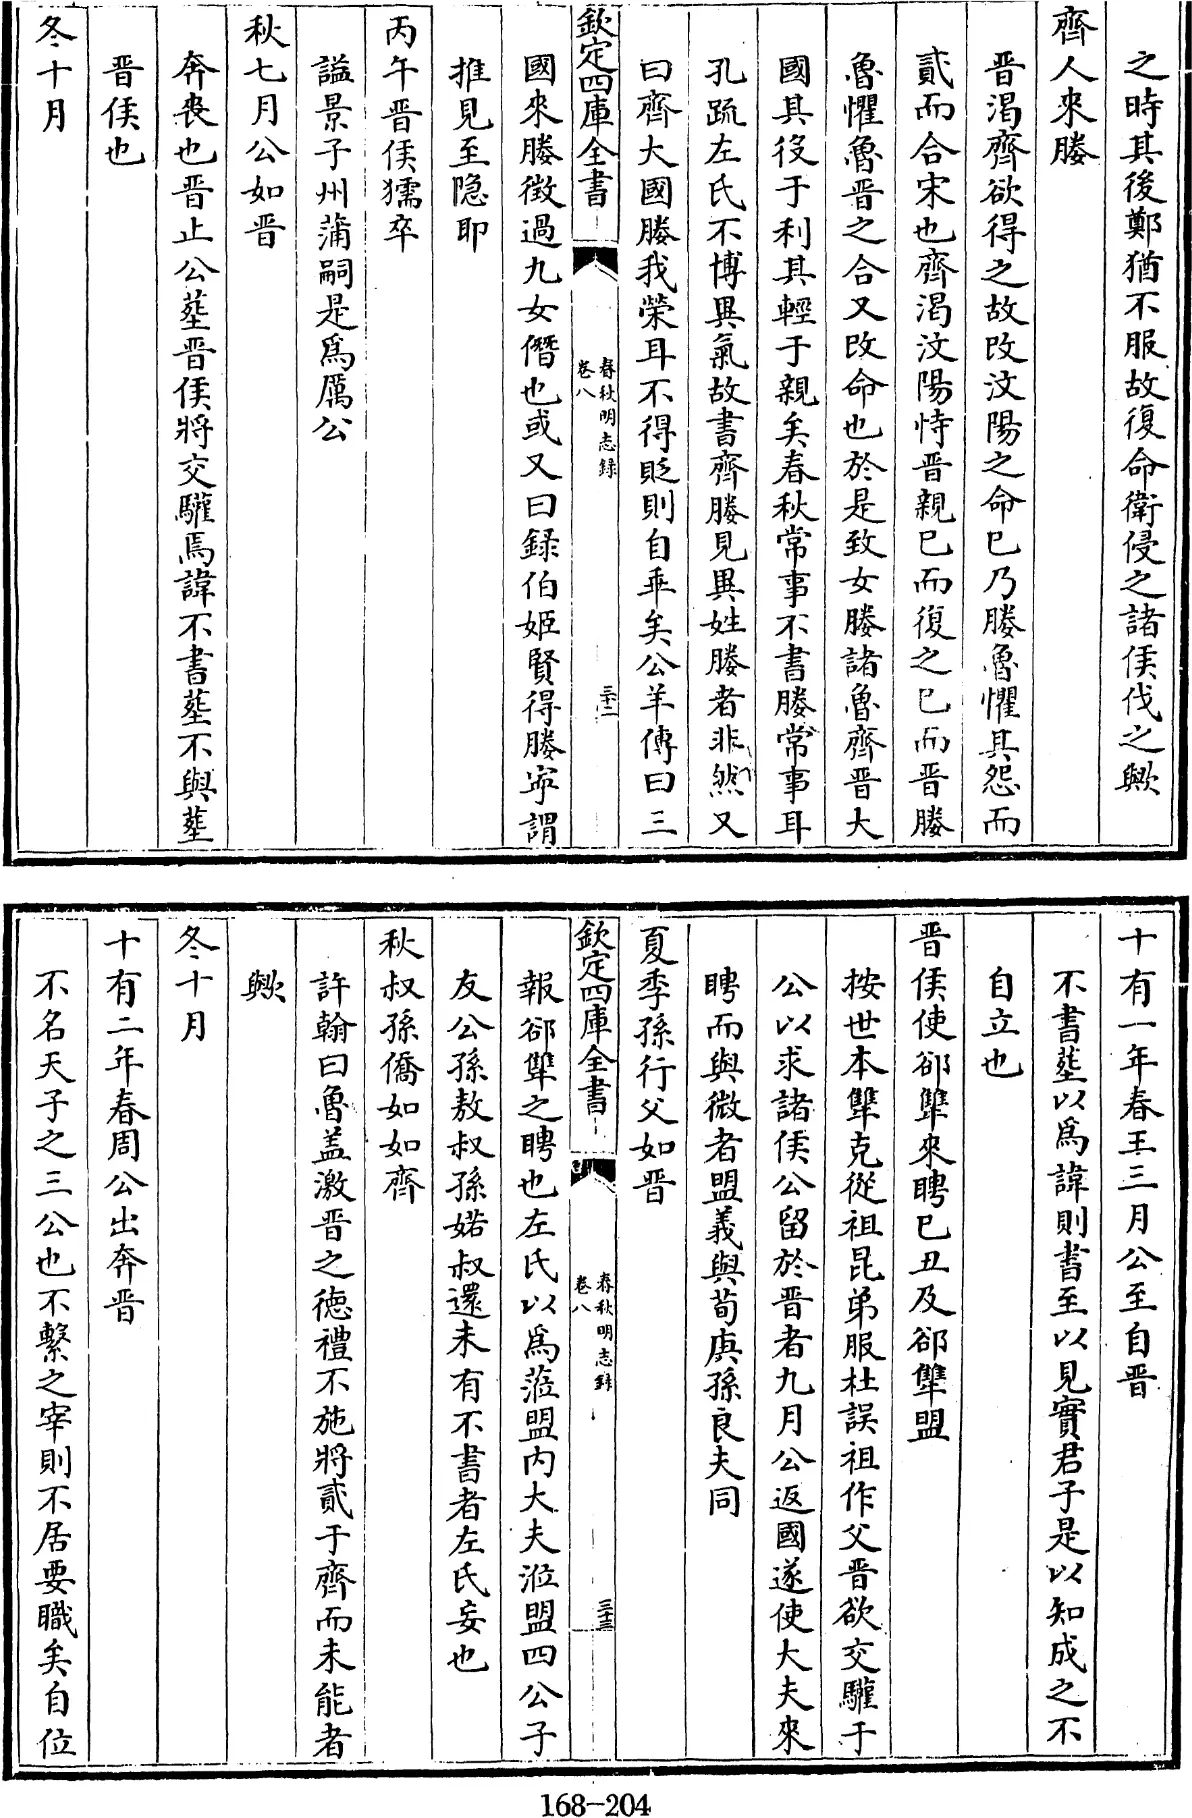 之時其後鄭猶不服故復命衛侵之諸侯伐之歟
齊人來媵
晉渴齊欲得之故改汶陽之命已乃媵魯懼其怨而
貳而合宋也齊渴汶陽恃晉親已而復之已而晉媵
魯懼魯晉之合又改命也於是致女媵諸魯齊晉大
國其役于利其輕于親矣春秋常事不書媵常事耳
孔疏左氏不博異氣故書齊媵見異姓媵者非然又
曰齊大國媵我榮耳不得貶則自乖矣公羊傳曰三
欽定四庫全書
春秋明志錄
卷八
三十二
國來媵徴過九女僭也或又曰錄伯姬賢得媵寕謂
推見至隐耶
丙午晉侯獳卒
謚景子州蒲嗣是為厲公
秋七月公如晉
奔喪也晉止公塟晉侯將交驩焉諱不書塟不與塟
晉侯也
冬十月
十有一年春王三月公至自晉
不書塟以為諱則書至以見實君子是以知成之不
自立也
晉侯使郤犨來聘已丑及郤犨盟
按世本犨克從祖昆弟服杜誤祖作父晉欲交驩于
公以求諸侯公留於晉者九月公返國遂使大夫來
聘而與微者盟義與荀庚孫良夫同
夏季孫行父如晉
欽定四庫全書
春秋明志錄
卷八
三十三
報郤犨之聘也左氏以為蒞盟内大夫涖盟四公子
友公孫敖叔孫婼叔還未有不書者左氏妄也
秋叔孫僑如如齊
許翰曰魯盖激晉之徳禮不施將貳于齊而未能者
歟
冬十月
十有二年春周公出奔晉
不名天子之三公也不繫之宰則不居要職矣自位
168-204